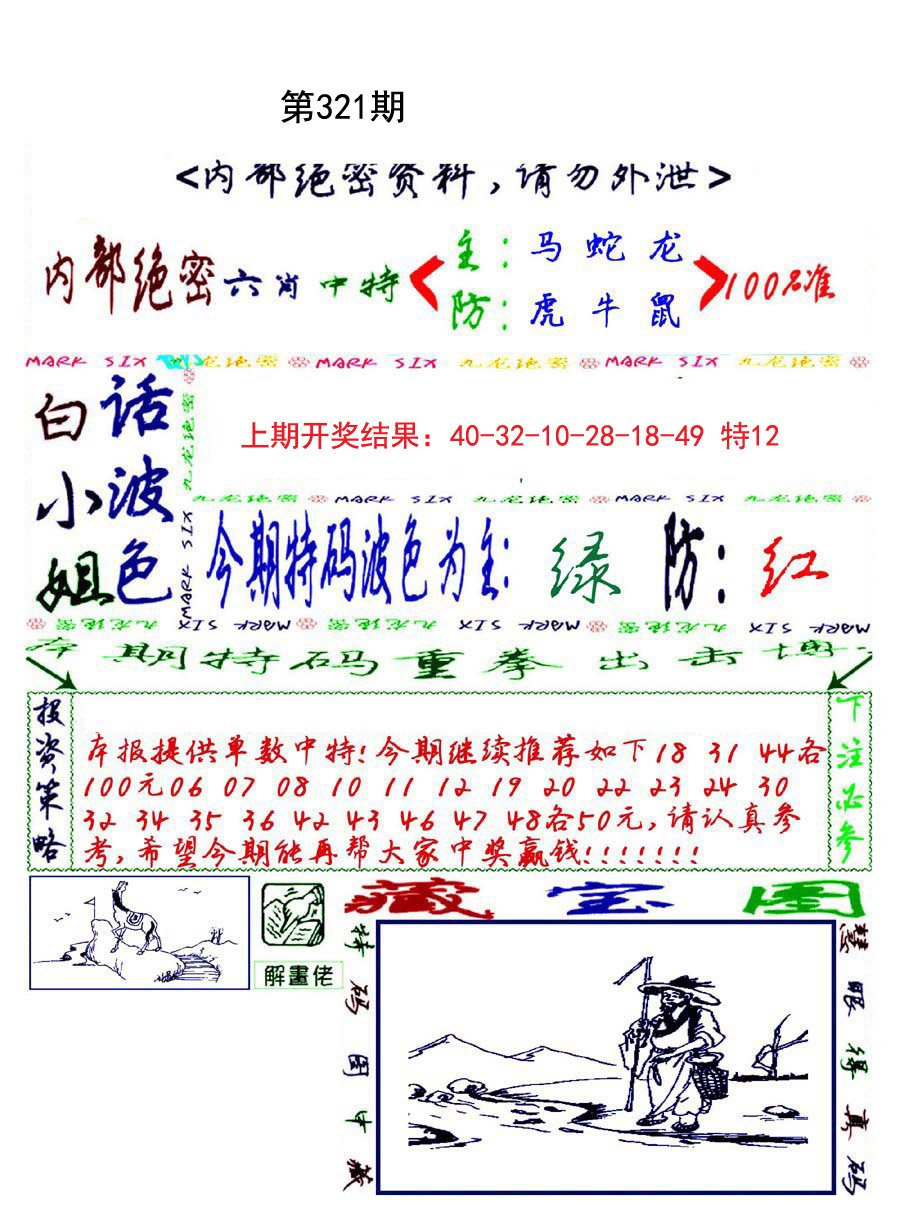 第321期
<内部绝密资料,请勿外泄>
内部绝密六肖中特
主:马蛇龙
防:虎牛鼠
100%准
MARK SIX 九龙绝密 MARK SIX 九龙绝密 MARK SIX 九龙绝密
白话
小波
姐色
九龙绝密
MARK SIX
上期开奖结果:40-32-10-28-18-49 特12
九龙绝密 MARK SIX 九龙绝密 MARK SIX 九龙绝密
今期特码波色为主:绿 防:红
九龙绝密 MARK SIX 九龙绝密 MARK SIX 九龙绝密 MARK SIX
本期特码重拳出击博
投资策略
本报提供单数中特!今期继续推荐如下18 31 44各
100元06 07 08 10 11 12 19 20 22 23 24 30
32 34 35 36 42 43 46 47 48各50元,请认真参
考,希望今期能再帮大家中奖赢钱!!!!!!!
下注必参
解畫佬
藏宝图
特码图中藏
慧眼得真码